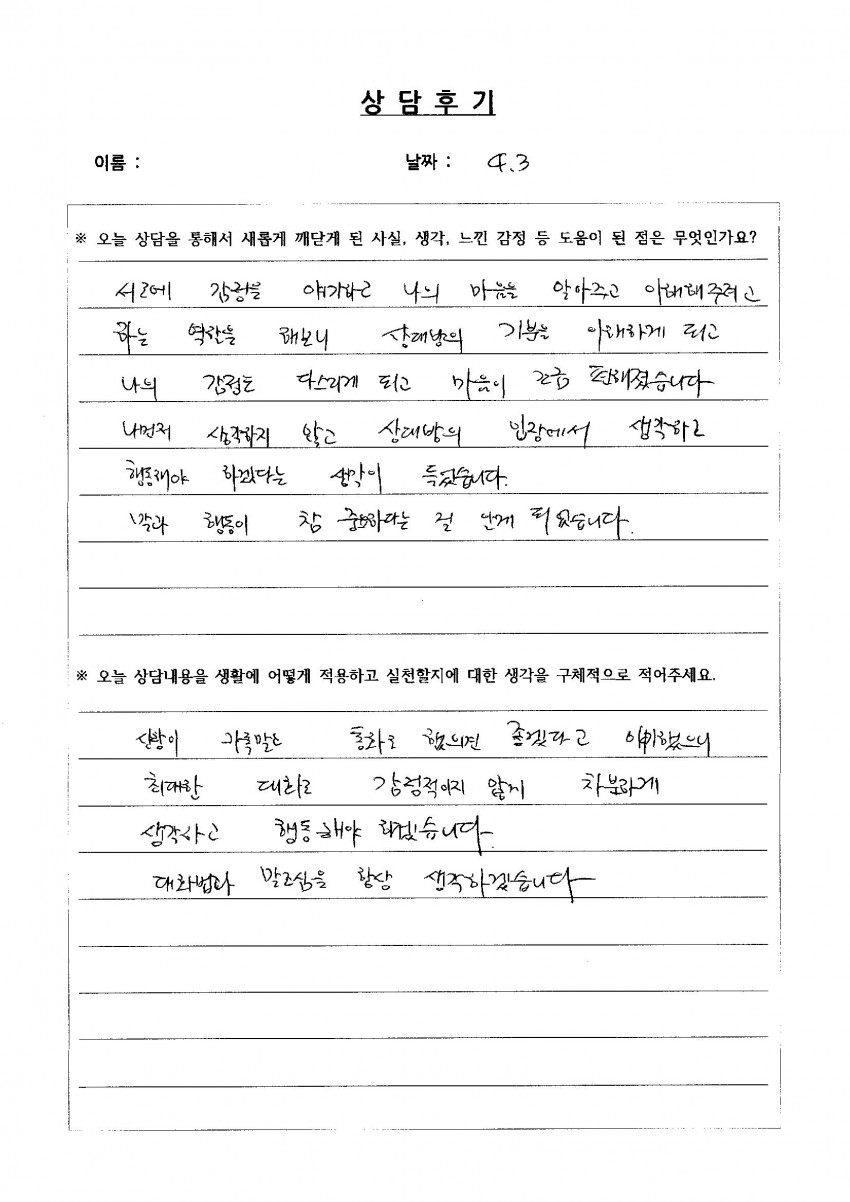 상 담 후 기
이름 :
날짜 : 4.3
※ 오늘 상담을 통해서 새롭게 깨닫게 된 사실, 생각, 느낀 감정 등 도움이 된 점은 무엇인가요?
서로에 감정을 얘기하고 나의 마음을 알아주고 이해해주려고
하는 역할을 해보니 상대방의 기분을 이해하게 되고
나의 감정도 다스리게 되고 마음이 조금 편해졌습니다
나먼저 생각하지 않고 상대방의 입장에서 생각하고
행동해야 하겠다는 생각이 들었습니다.
행동이 참 중요하다는 걸 되었습니다.
※ 오늘 상담내용을 생활에 어떻게 적용하고 실천할지에 대한 생각을 구체적으로 적어주세요.
신랑이 좋겠다고
최대한 대화로 감정적이지 않게 차분하게
생각하고 행동해야 되겠습니다.
대화법과 말조심을 항상 생각하겠습니다